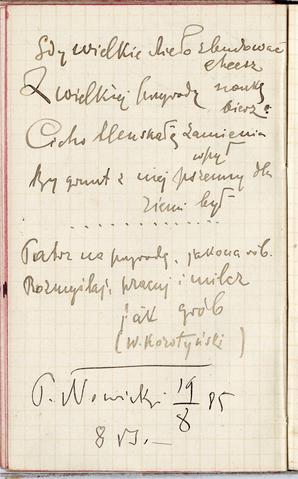 Gdy wielkie dzieło zbudować
chcesz
Z wielkiej przyrody naukę
bierz:
Cicho skałę zamienia
wpył
By grunt z niej pszenny dla
ziemi był
. . . . . . . . . . . . . .
Patrz na przyrodę, jak ona rób.
Rozmyślaj, pracuj i milcz
jak grób
(W. Korotyński)
P. Nowicki 19/8 85
8